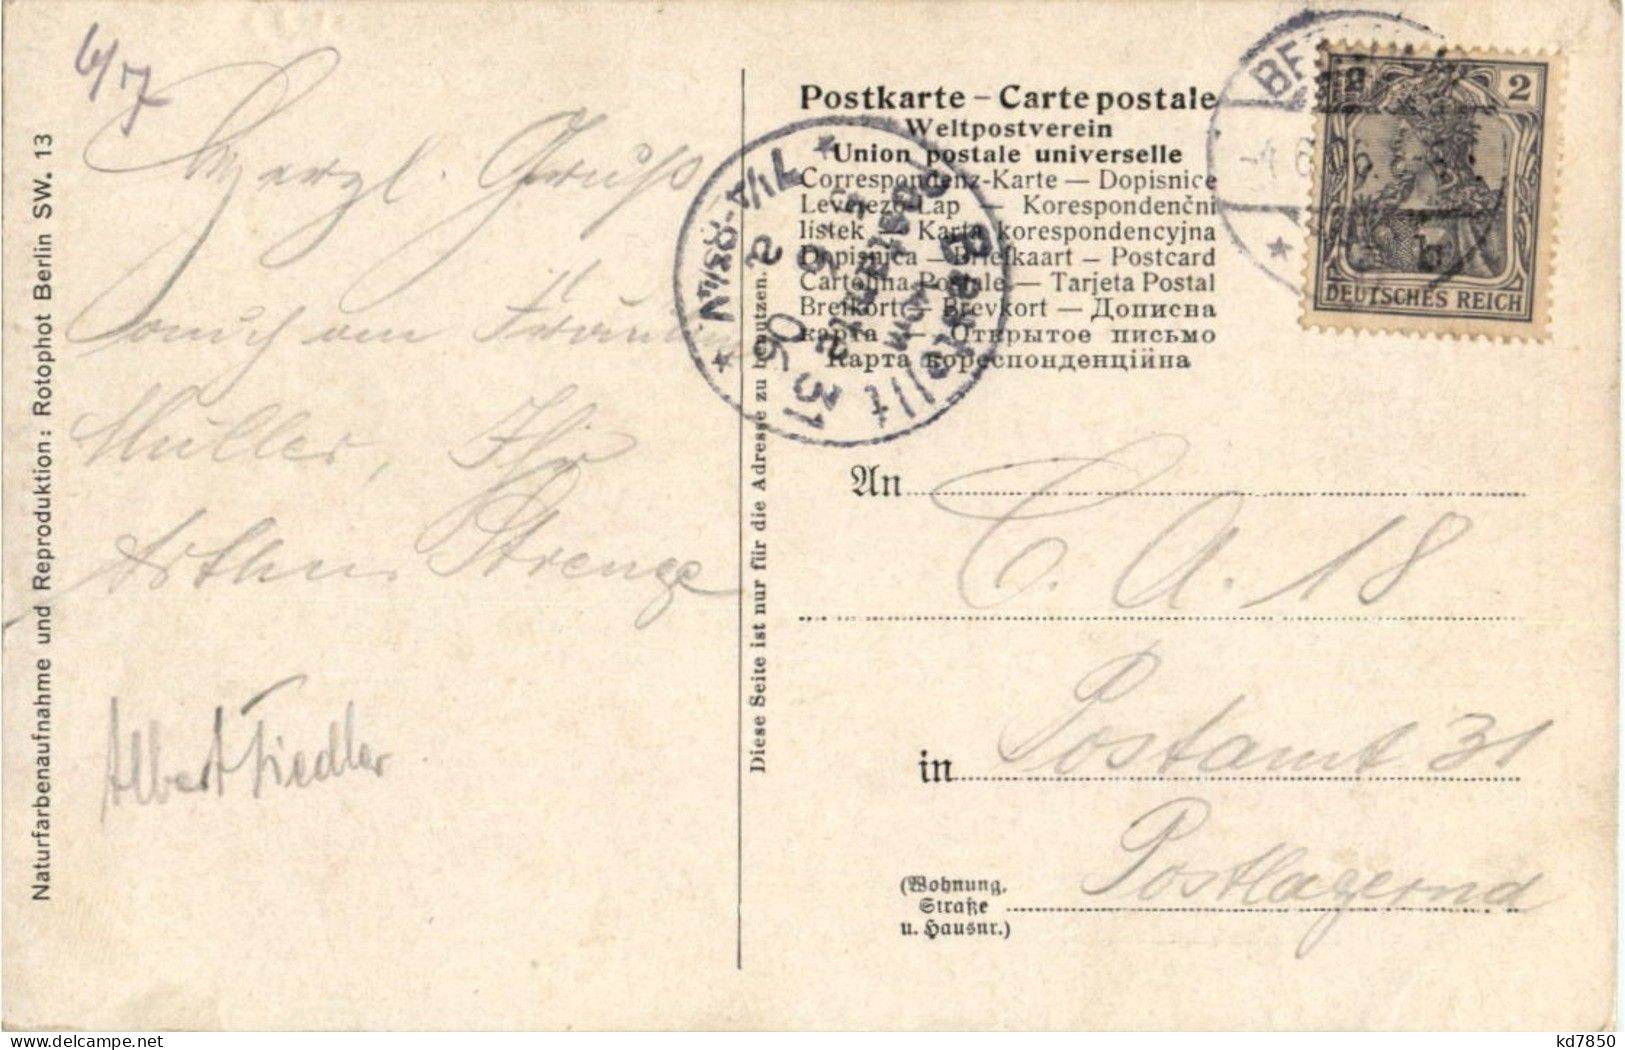 6/7
Herzl. Gruß
auch an Fräulein
Müller, Ihr
Arthur Strenge
Albert Fiedler
Naturfarbenaufnahme und Reproduktion: Rotophot Berlin SW. 13
Diese Seite ist nur für die Adresse zu benutzen.
Postkarte – Carte postale
Weltpostverein
Union postale universelle
Correspondenz-Karte — Dopisnice
Levelező-Lap — Korespondenční
lístek — Karta korespondencyjna
Dopisnica — Briefkaart — Postcard
Cartolina Postale — Tarjeta Postal
Brefkort — Brevkort — Дописна
карта — Открытое письмо
Карта кореспонденційна
2 2
DEUTSCHES REICH
Bestellt
vom
Postamte
31
An C. A. 18
in Postamt 31
(Wohnung, Straße u. Hausnr.) Postlagernd
kd7850